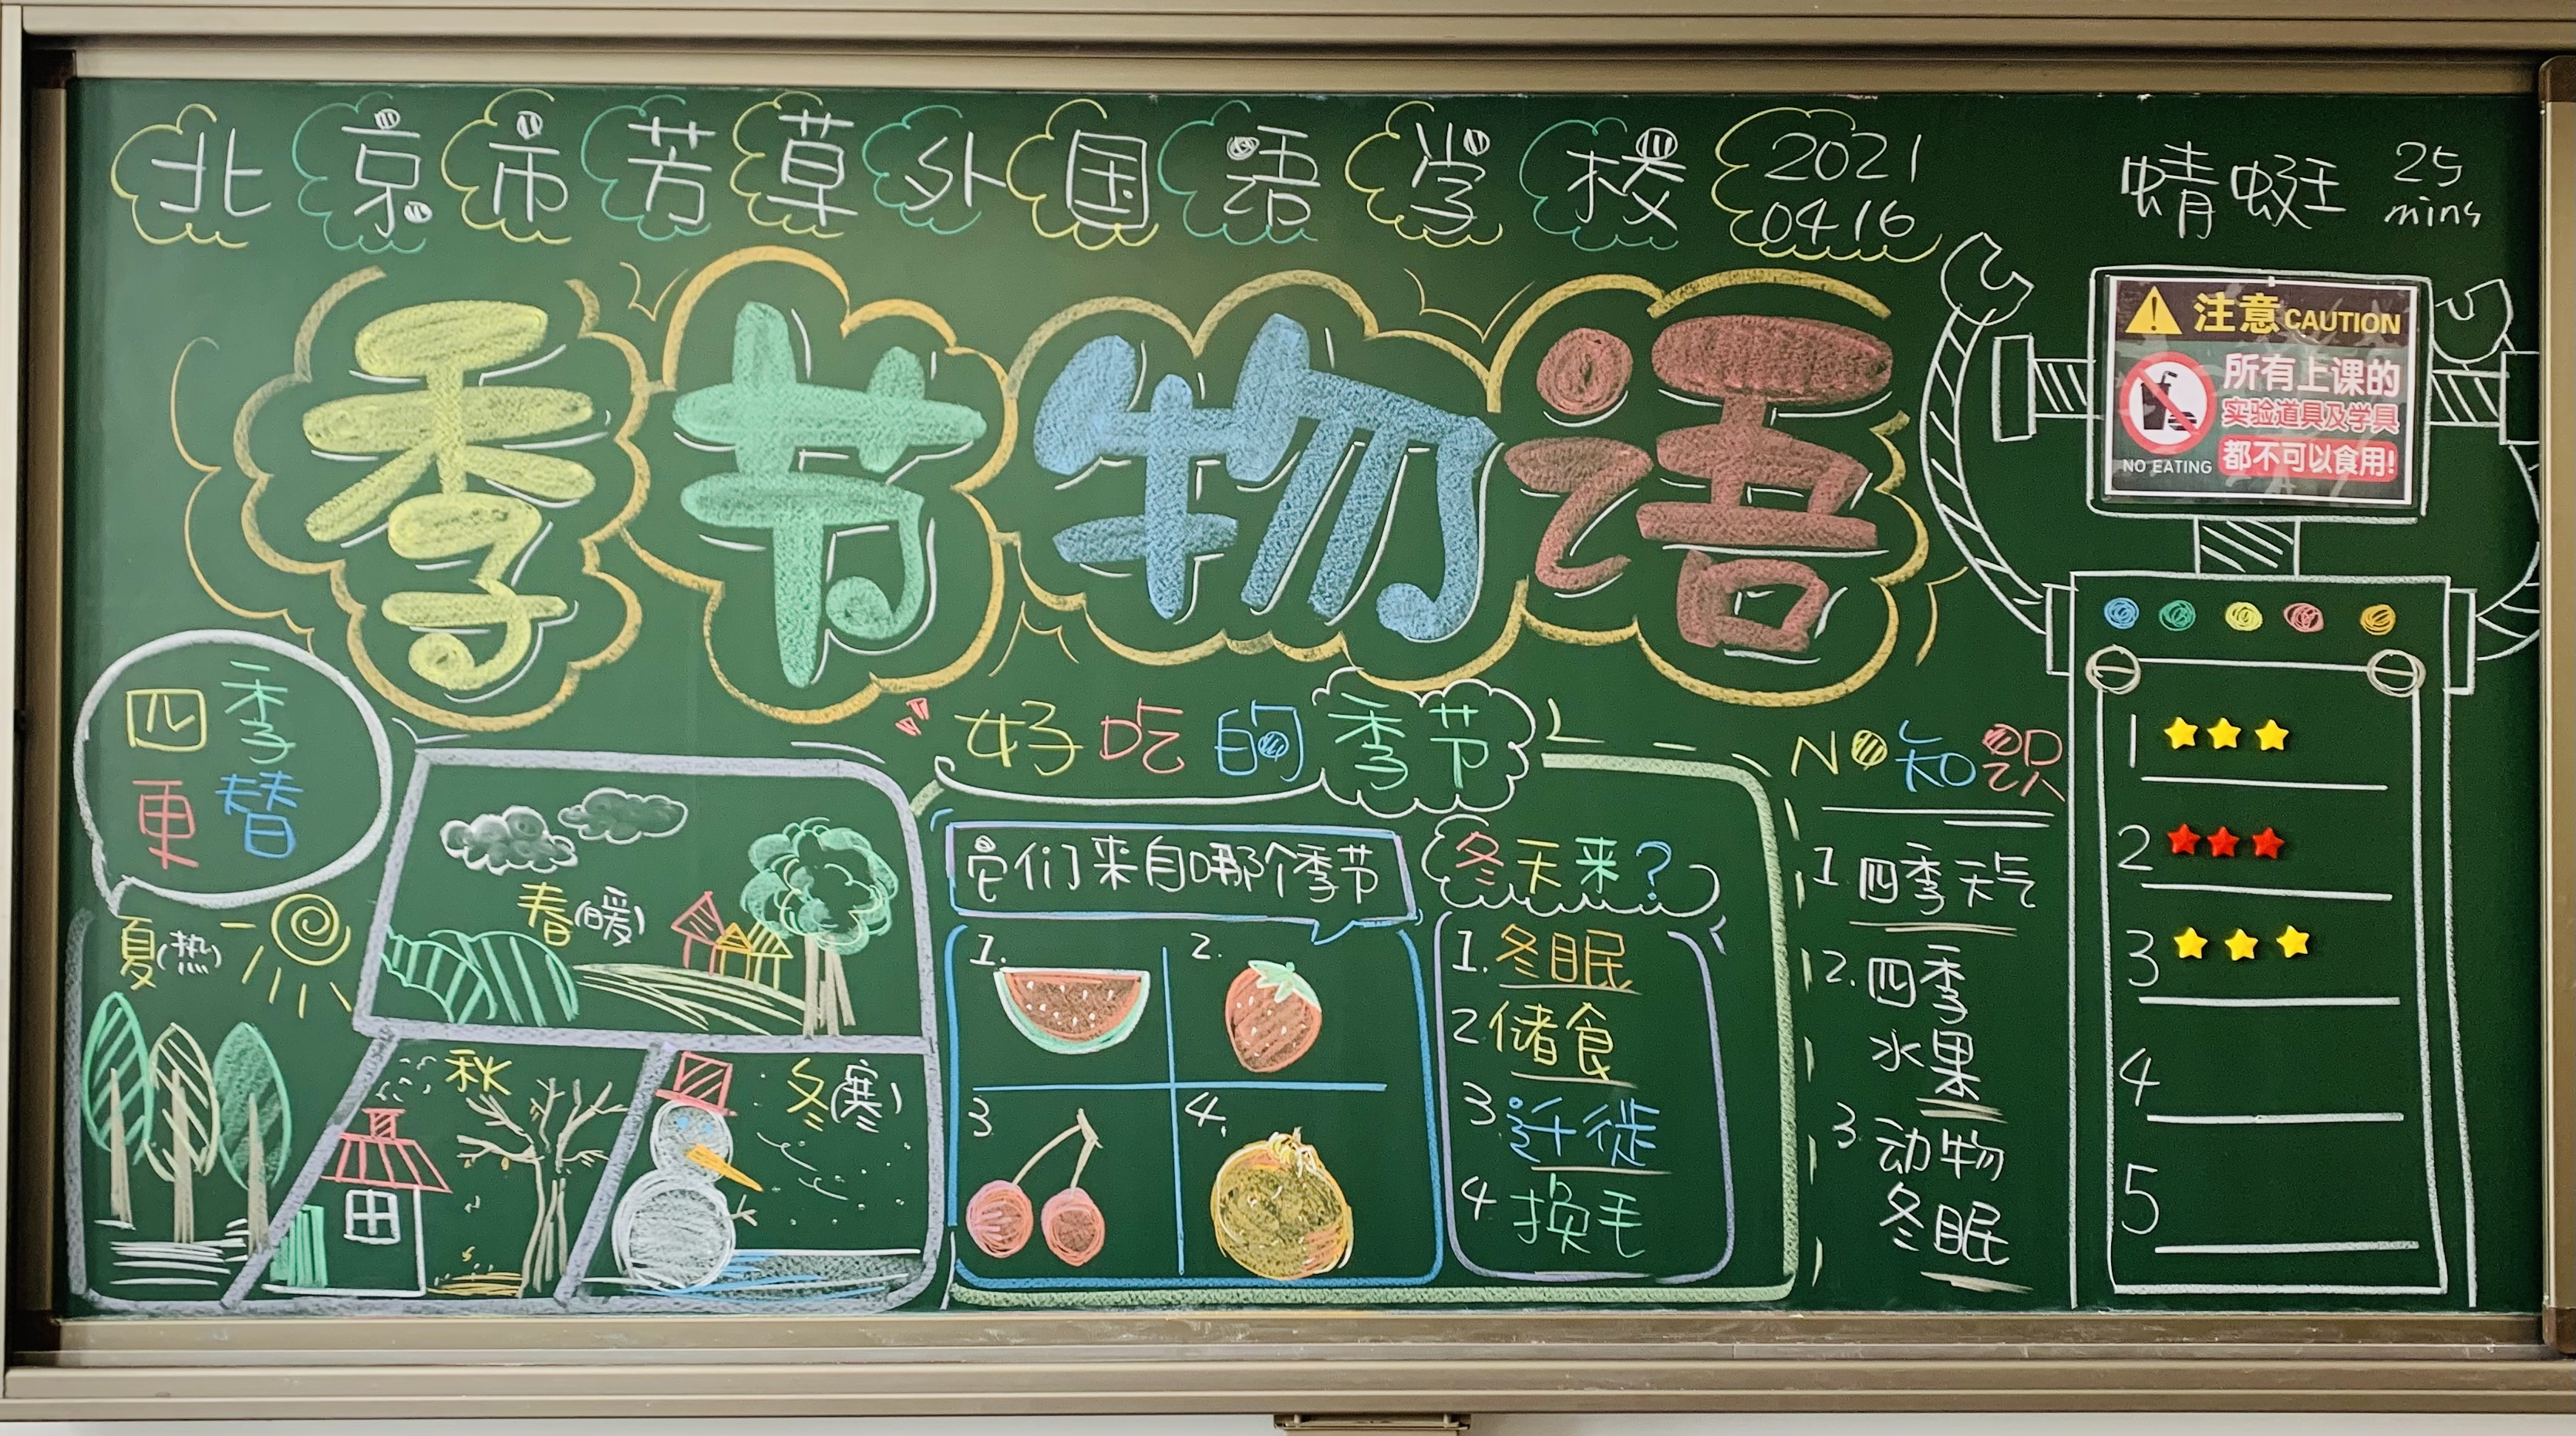 北京市芳草外国语学校 2021
04.16
蜻蜓 25
mins
季节物语
注意 CAUTION
所有上课的
实验道具及学具
都不可以食用!
NO EATING
四季
更替
春(暖)
夏(热)
秋
冬(寒)
好吃的季节
它们来自哪个季节
1.
2.
3
4.
冬天来?
1. 冬眠
2 储食
3. 迁徙
4 换毛
NO 知识
1. 四季天气
2. 四季
水果
3 动物
冬眠
1
2
3
4
5